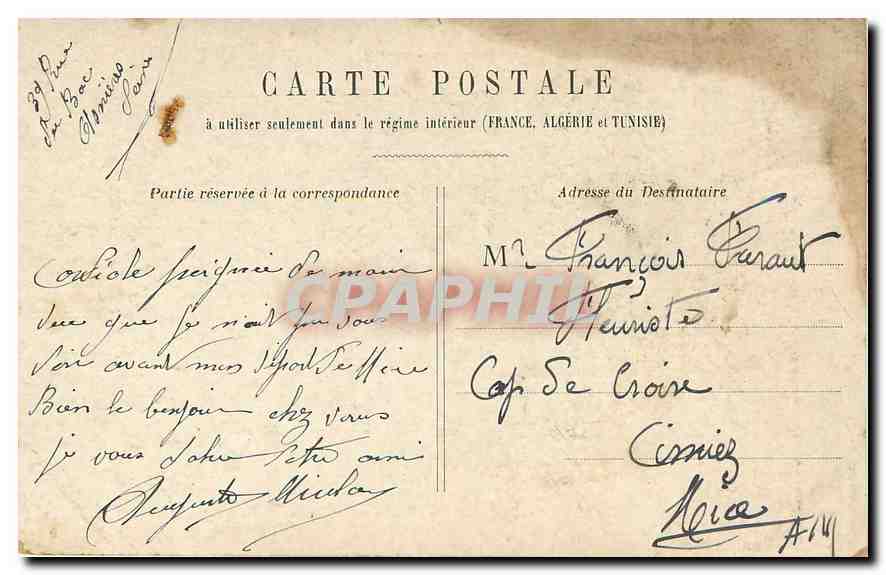 39 Rue
du Bac
Asnières
Seine
CARTE POSTALE
à utiliser seulement dans le régime intérieur (FRANCE, ALGÉRIE et TUNISIE)
Partie réservée à la correspondance
Cordiale poignée de main
que je n'ait pu vous
avant mon départ de Nice
Bien le bonjour chez vous
je vous votre ami
Auguste
Adresse du Destinataire
Mr François Faraut
Fleuriste
Cap de Croix
Cimiez
Nice
A M
CPAPHIL